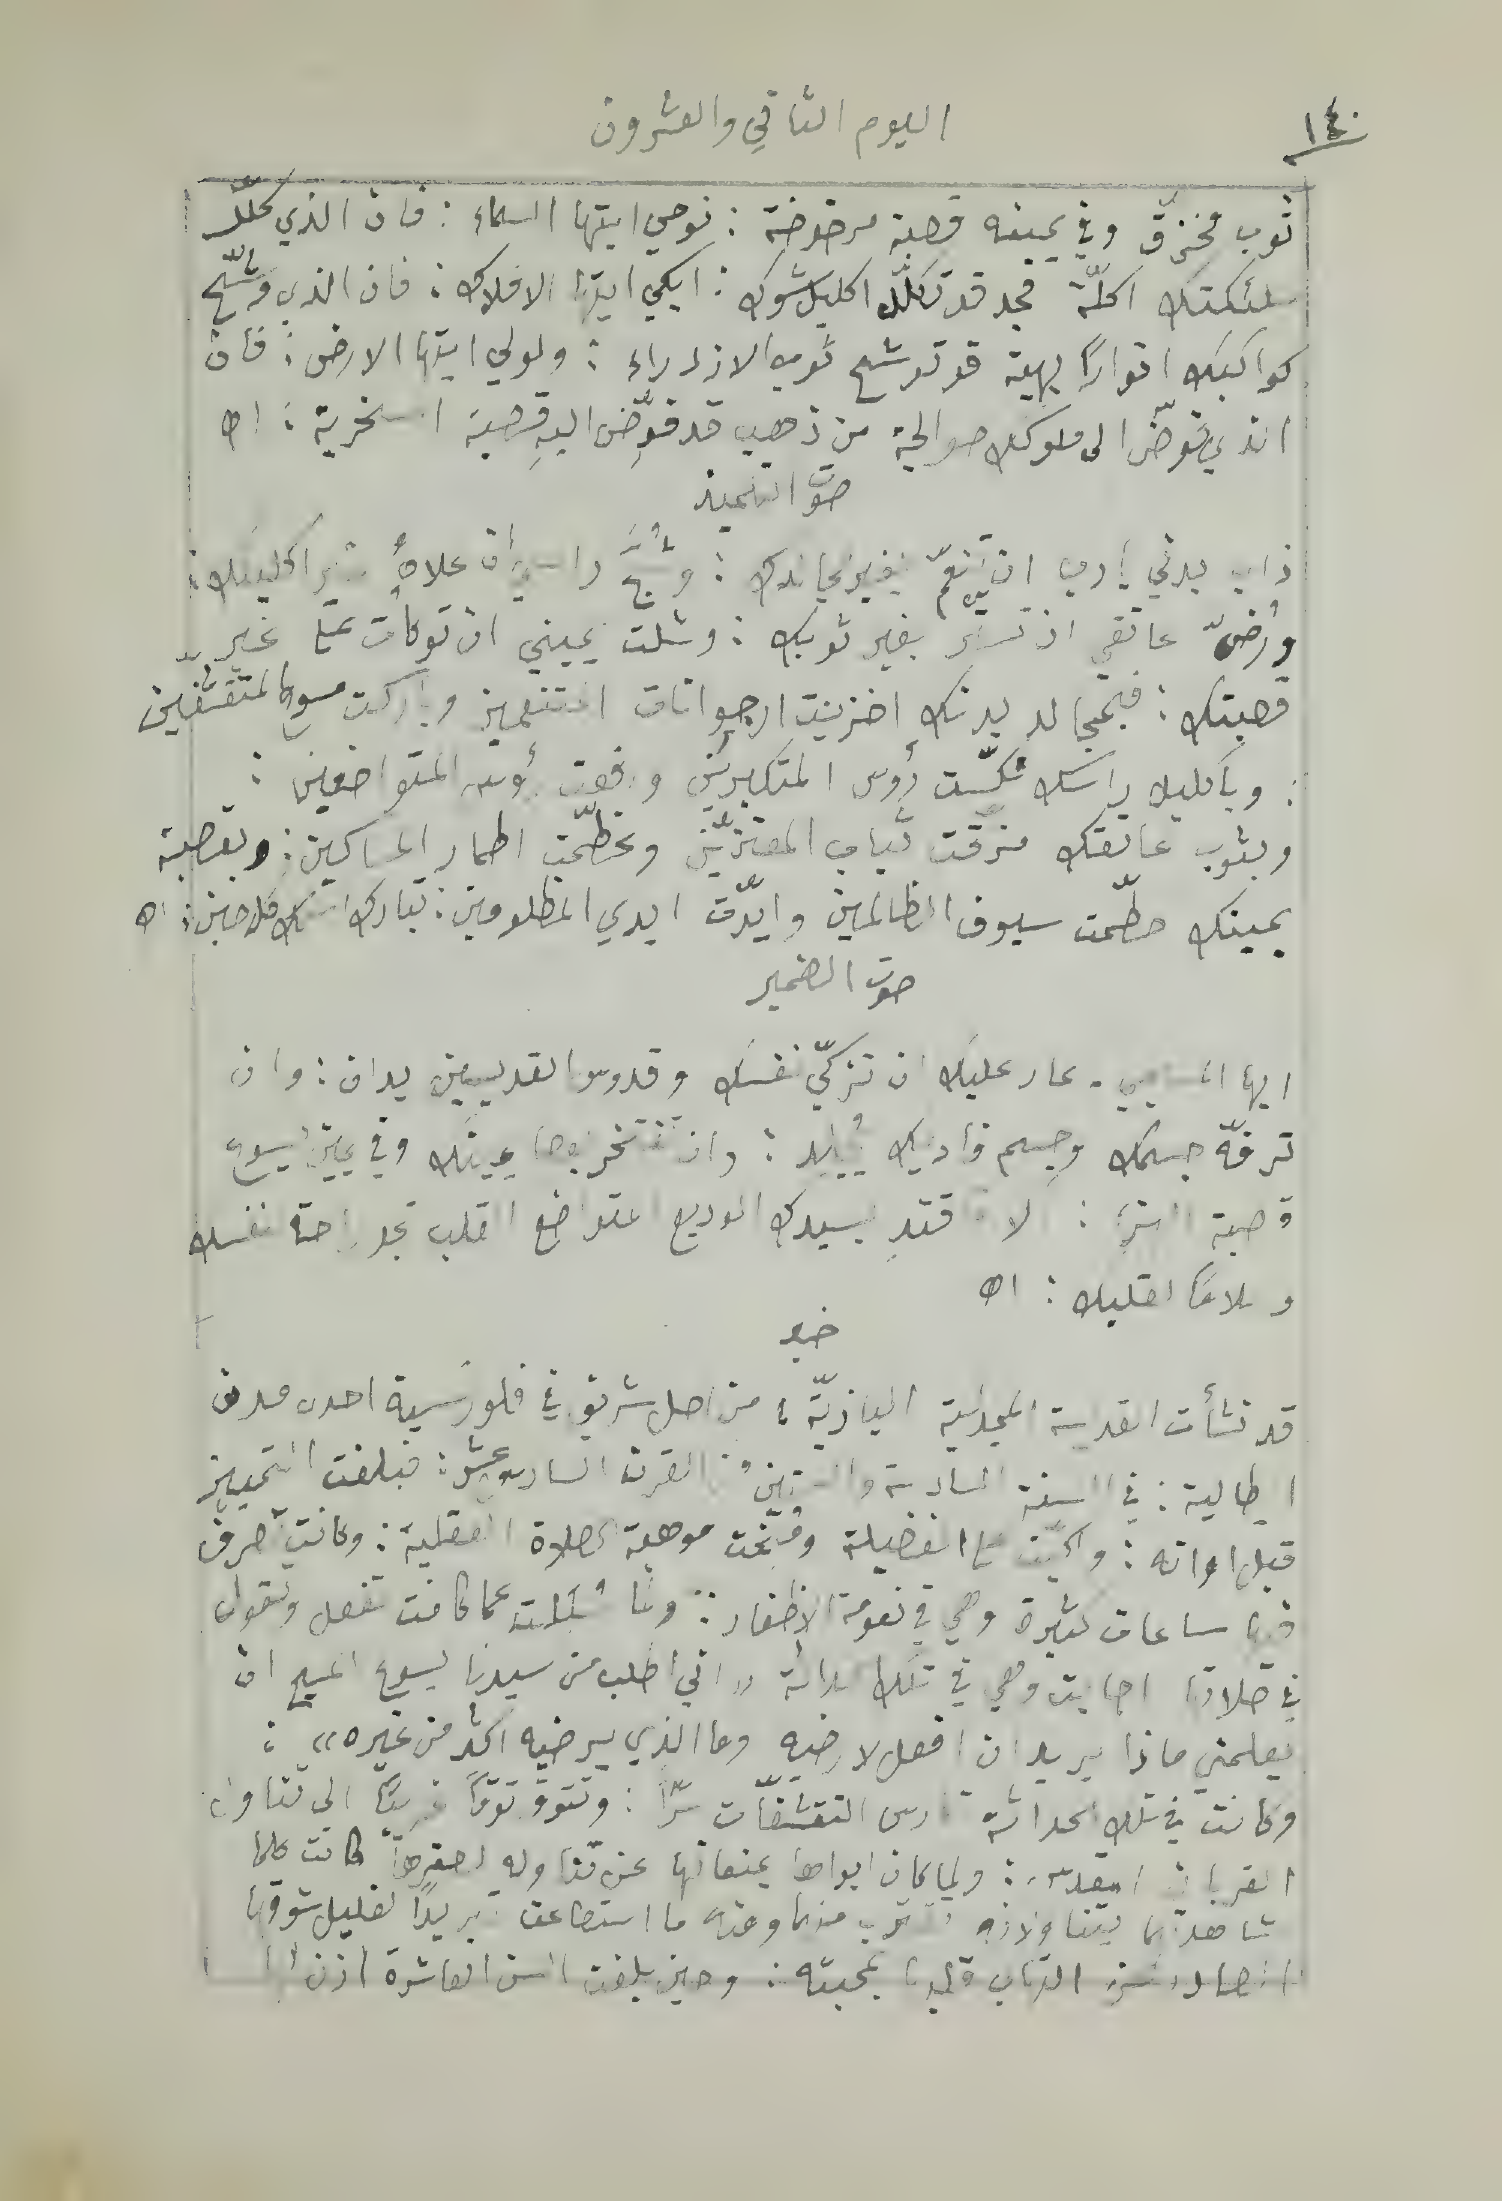 ١٤٠
اليوم الثاني والعشرون
ثوب مخزّق وفي يمينه قصبة مرضوضة : نوحي ايتها السماء : فان الذي كلّل
ملئكتك اكلّة مجد قد تكلّل اكليل شوك : ابكي ايتها الافلاك : فان الذي وشّح
كواكبك انوارًا بهية قد توشح ثوب الازدراء : ولولي ايتها الارض : فان
الذي فوّض الى ملوكك صوالجة من ذهب قد فوِّض اليهِ قصبة السخرية : اه
صوت التلميذ
ذاب بدني يا رب ان تنعّم بغير عابدك : وشُجَّ راسي ان علاهُ غير اكليلك :
ورُضّ عاتقي اذ تستر بغير ثوبك : وشلت يميني ان توكات على غير
قصبتك : فبمجالد بدنك اخزيت ارجوانات المتنعمين وباركت مسوح المتقشّفين
: وباكليل راسك نكّست رؤس المتكبرين ورفعت رؤس المتواضعين :
وبثوب عاتقك مزقت ثياب المعتزّين وعظّمت اطمار المساكين : وبقصبة
يمينك حطّمت سيوف الظالمين وايّدت ايدي المظلومين : تبارك اسمك للراحمين : اه
صوت الضمير
ايها المسيحي . عار عليك ان تزكّي نفسك وقدوس القديسين يدان : وان
ترفّه جسمك وجسم فاديك يُجلد : وان تفتخر يمينك وفي يمين يسوع
قصبة الهزء : الا اقتدِ بسيدك الوديع المتواضع القلب تجد راحة لنفسك
وسلامًا لقلبك : اه
خبر
قد نشأت القديسة المجدلية البازيّة : من اصل شريف في فلورنسية احدى مدن
ايطالية : في السنة السادسة والستين من القرن السادس عشر : فبلغت التمييز
قبل اوانه : واكبّت على الفضيلة ومُنحت موهبة الصلاة العقلية : وكانت تصرف
فيها ساعات كثيرة وهي في نعومة الاظفار : ولما سُئلت عما كانت تفعل وتقول
في صلاتها اجابت وهي في تلك الحداثة « اني اطلب من سيدنا يسوع المسيح ان
يعلمني ماذا يريد ان افعل لارضيه وما الذي يرضيه اكثر من غيره » :
وكانت في تلك الحداثة تمارس التقشّفات سرًّا : وتتوق توقًا غريبًا الى تناول
القربان المقدس : ولما كان ابواها يمنعانها عن تناوله لصغرها كانت كلما
شاهدتهما يتناولانه تقترب منهما وعنه ما استطاعت تبريدًا لغليل شوقها
الصادر من التهاب قلبها بمحبته : وحين بلغت السن العاشرة اذن لها